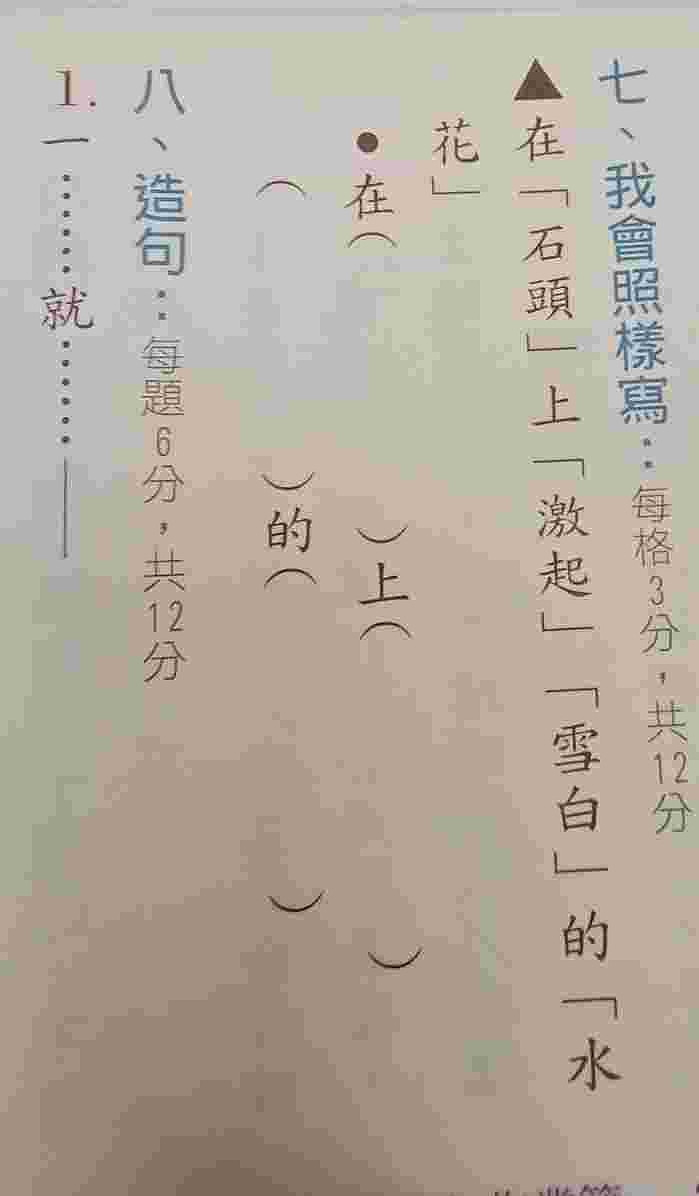 七、我會照樣寫：每格3分，共12分
▲在「石頭」上「激起」「雪白」的「水
花」
●在（　　）上（　　）
（　　）的（　　）
八、造句：每題6分，共12分
1.一……就……＿＿